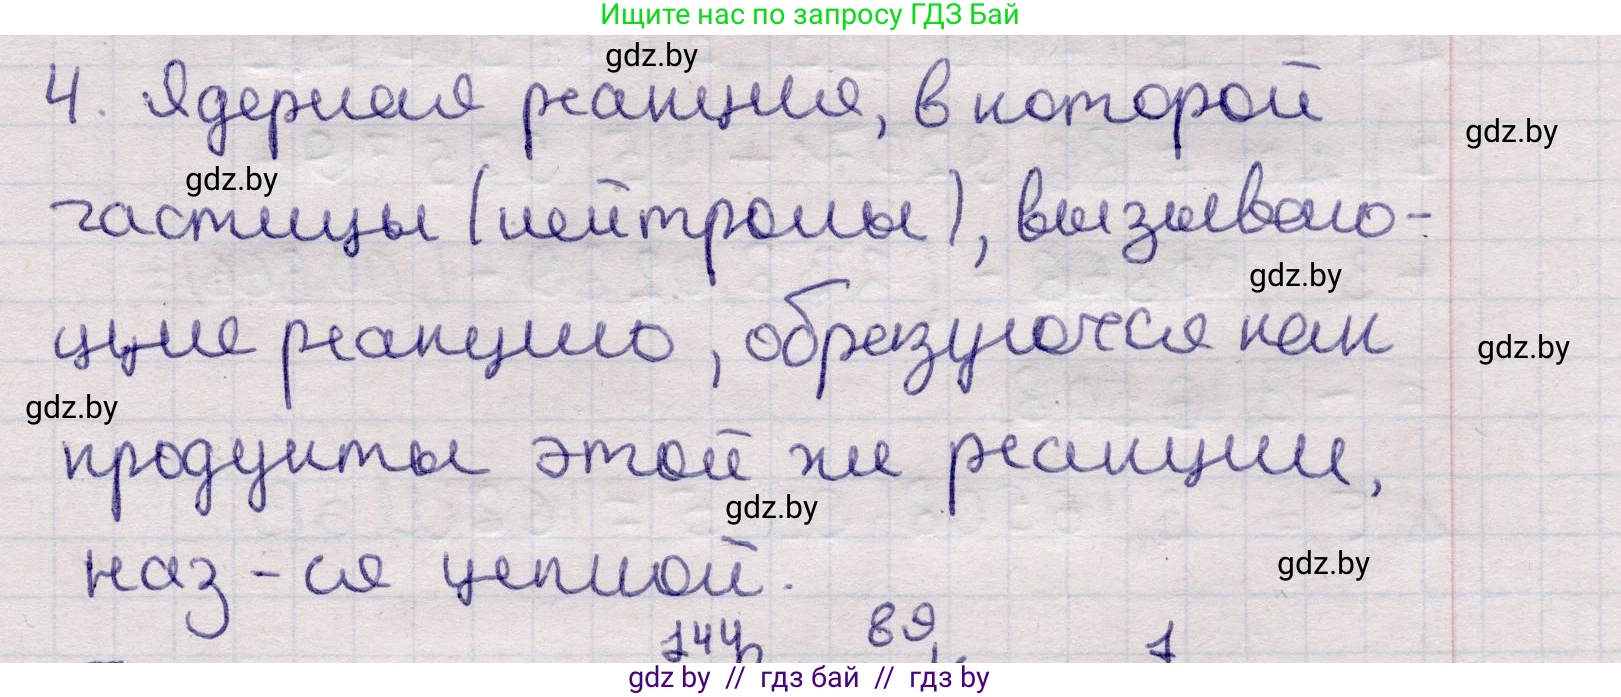 Ищите нас по запросу ГДЗ Бай
gdz.by
4. Ядерная реакция, в которой
gdz.by
gdz.by
частицы (нейтроны), вызываю-
gdz.by
щие реакцию, образуются как
gdz.by
gdz.by
продукты этой же реакции,
gdz.by
наз-ся цепной.
gdz.by
144 89 1
gdz by // гдз бай // гдз by